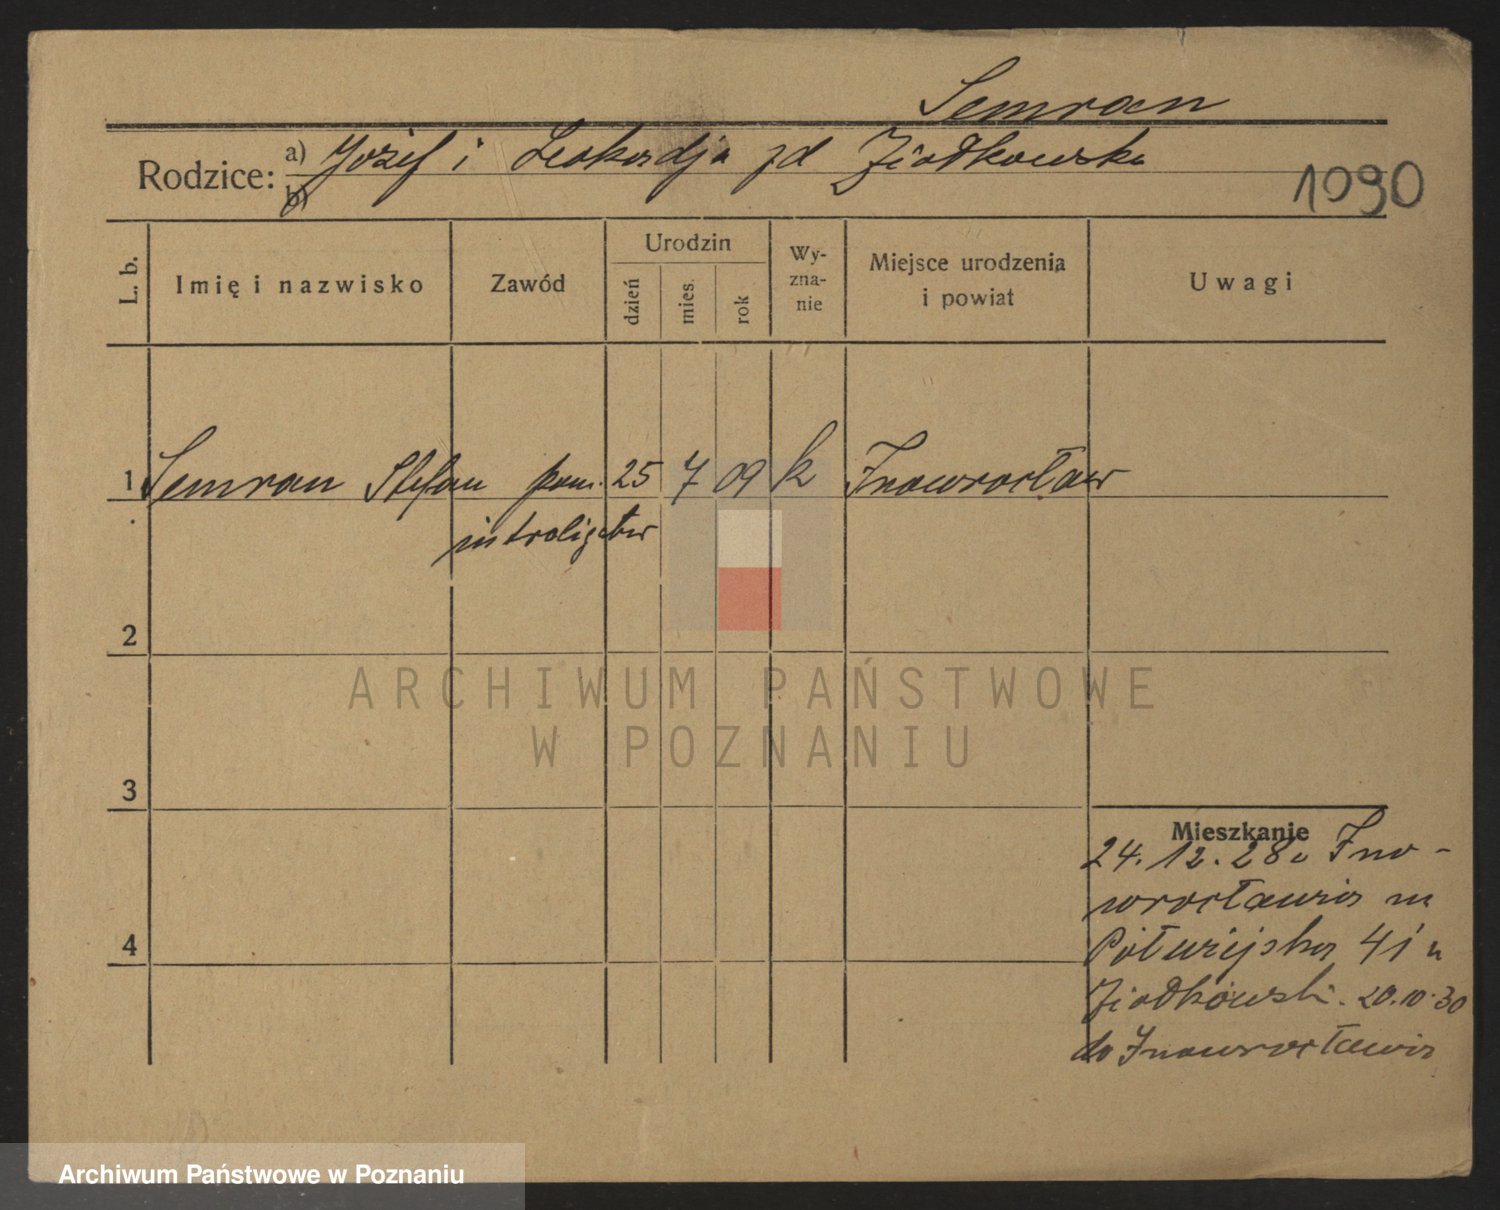 Semran
Rodzice: a) Józef i Leokadja zd Ziołkowska
b)
1090
L. b.
Imię i nazwisko
Zawód
Urodzin
dzień
mies.
rok
Wy-
zna-
nie
Miejsce urodzenia
i powiat
Uwagi
1 Semran Stefan pom. 25 7 09 k Inowrocław
introligator
2
ARCHIWUM PAŃSTWOWE
W POZNANIU
3
Mieszkanie
24.12.28 Ino-
wrocławia na
Półwiejska 41 u
4
Ziołkowski. 20.10.30
do Inowrocławia
Archiwum Państwowe w Poznaniu